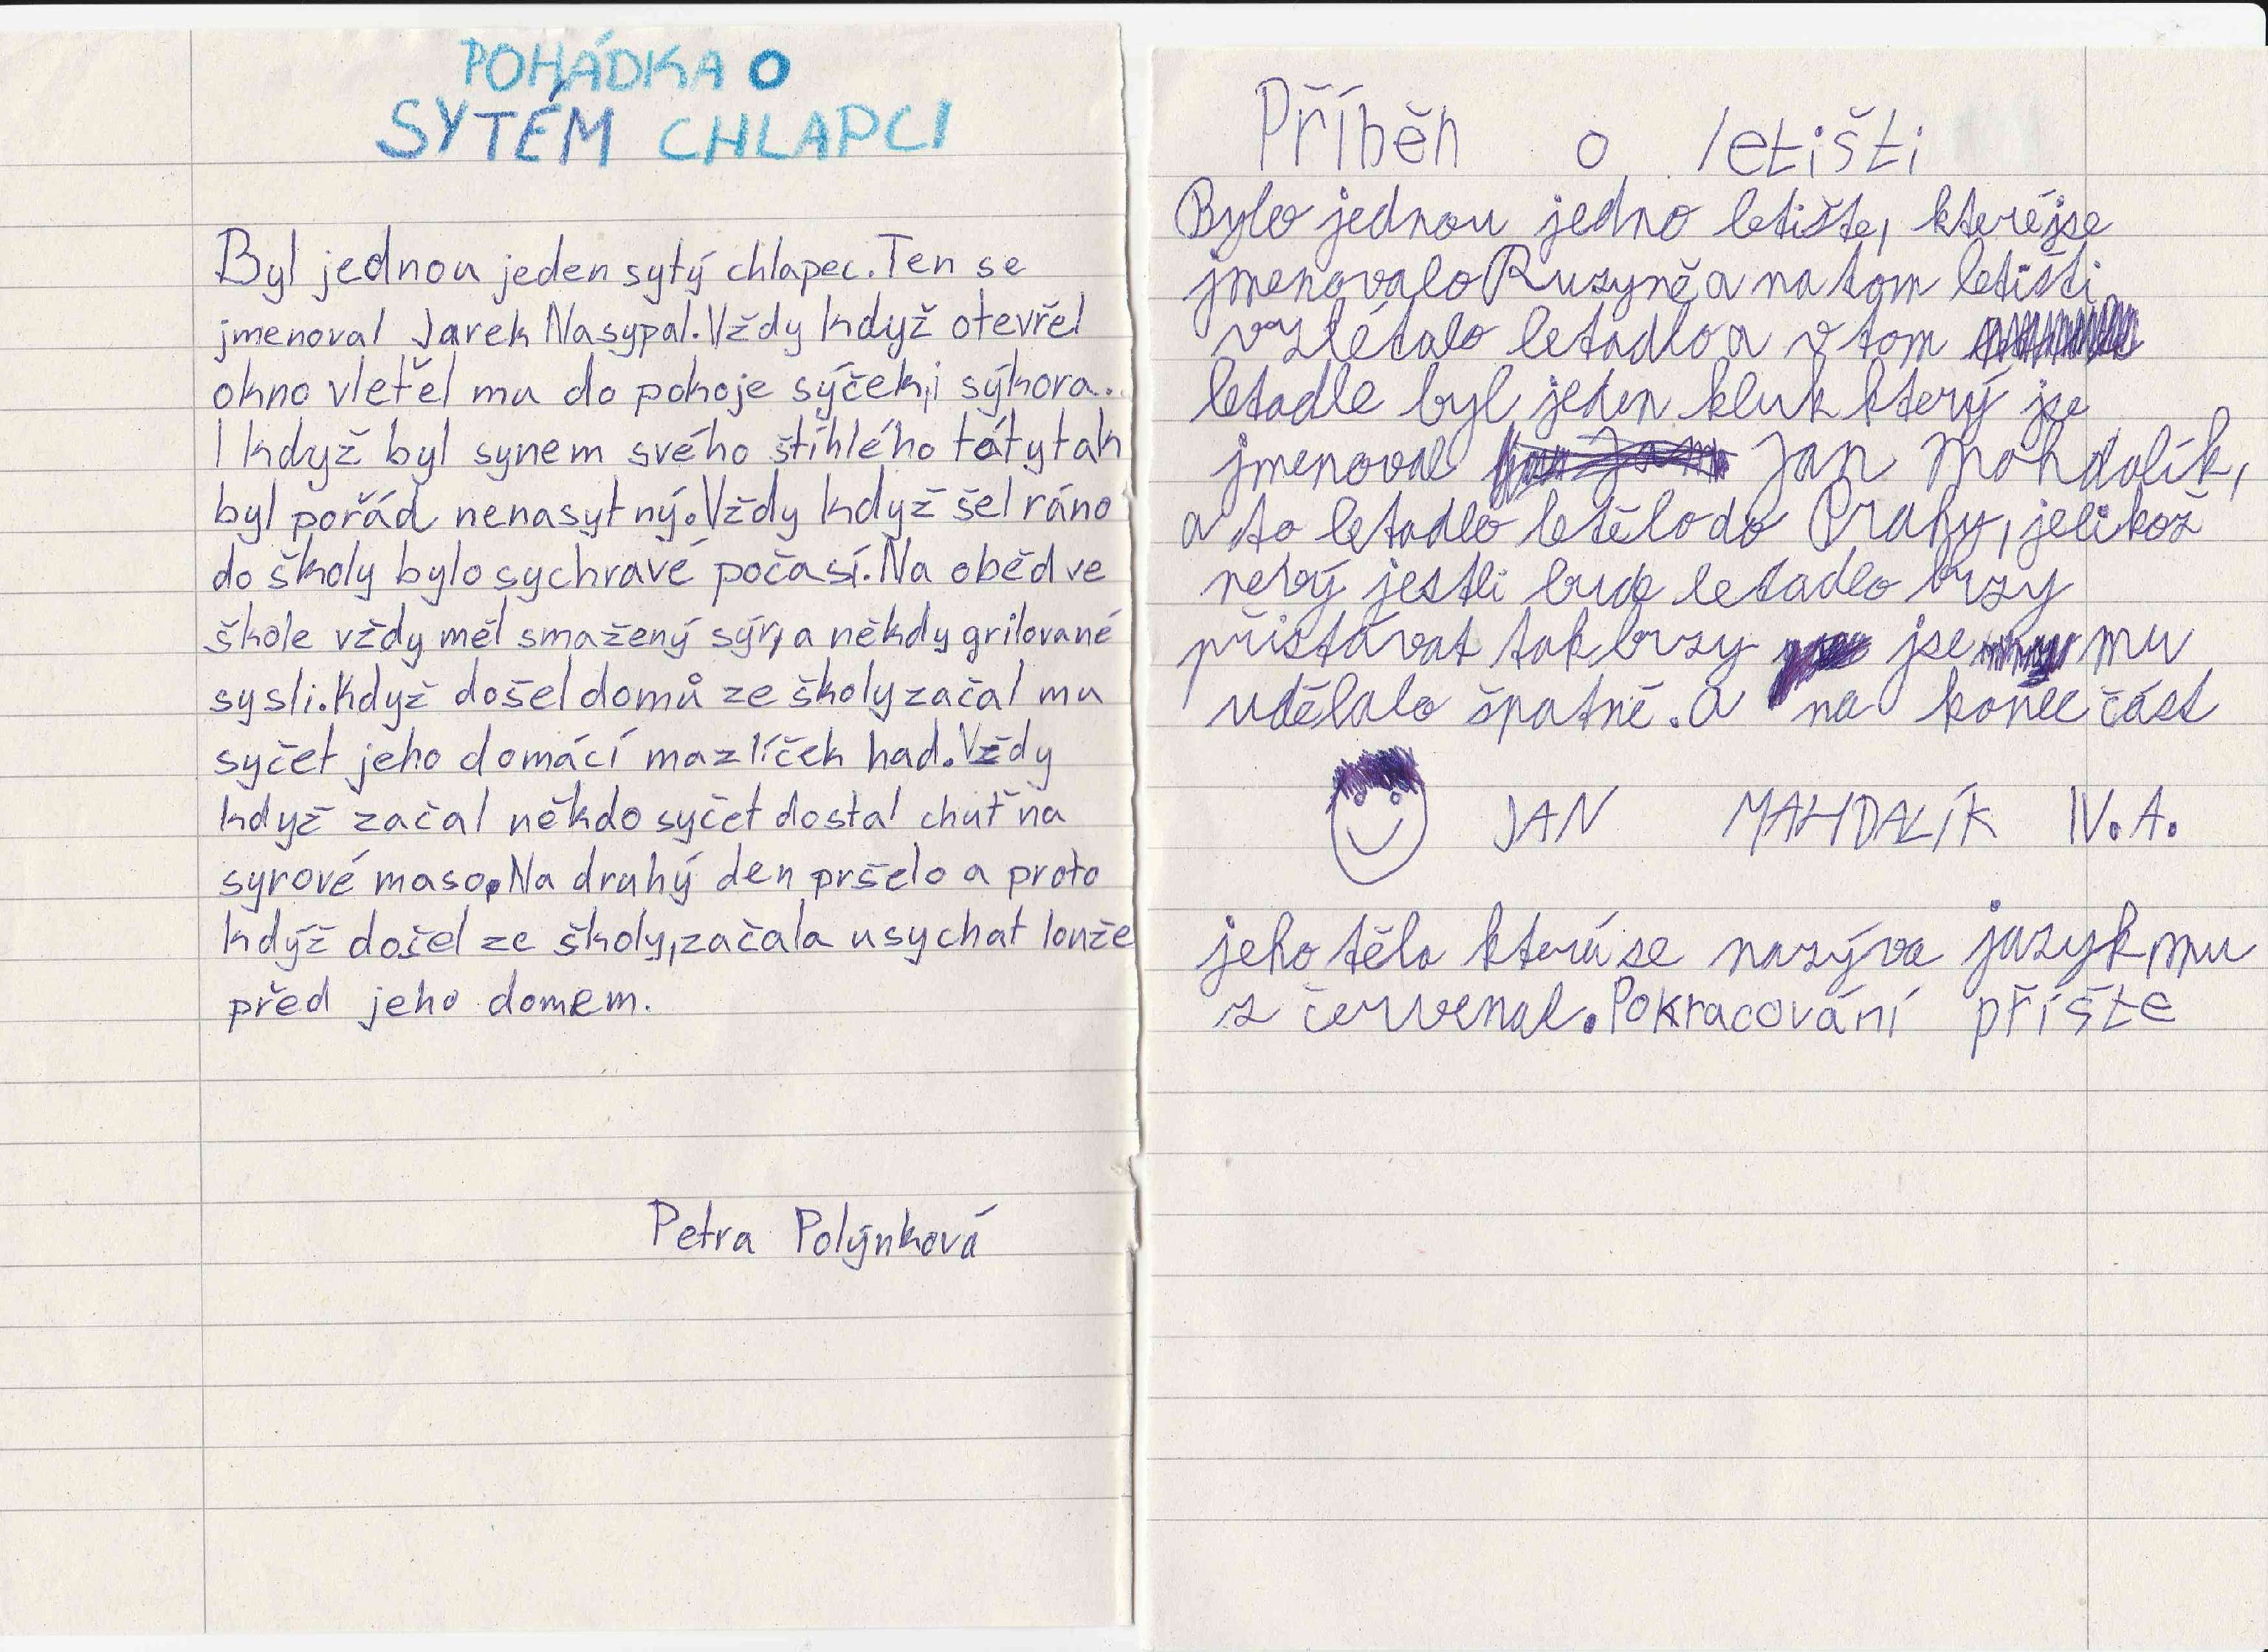 POHÁDKA O
SYTÉM CHLAPCI
Byl jednou jeden sytý chlapec. Ten se
jmenoval Jarek Nasypal. Vždy když otevřel
okno vletěl mu do pokoje sýček, i sýkora..
I když byl synem svého štíhlého táty tak
byl pořád nenasytný. Vždy když šel ráno
do školy bylo sychravé počasí. Na oběd ve
škole vždy měl smažený sýr, a někdy grilované
sysli. Když došel domů ze školy začal mu
syčet jeho domácí mazlíček had. Vždy
když začal někdo syčet dostal chuť na
syrové maso. Na druhý den pršelo a proto
když došel ze školy, začala usychat louže
před jeho domem.
Petra Polýnková
Příběh o letišti
Bylo jednou jedno letiště, které jse
jmenovalo Ruzyně a na tom letišti
vzlétalo letadlo a v tom
letadle byl jeden kluk který jse
jmenoval Jan Mahdalík,
a to letadlo letělo do Prahy, jelikož
neví jestli bude letadlo brzy
přistávat tak brzy jse mu
udělalo špatně. A na konec část
JAN MAHDALÍK IV. A.
jeho těla která se nazýva jazyk mu
z červenal. Pokracování příště